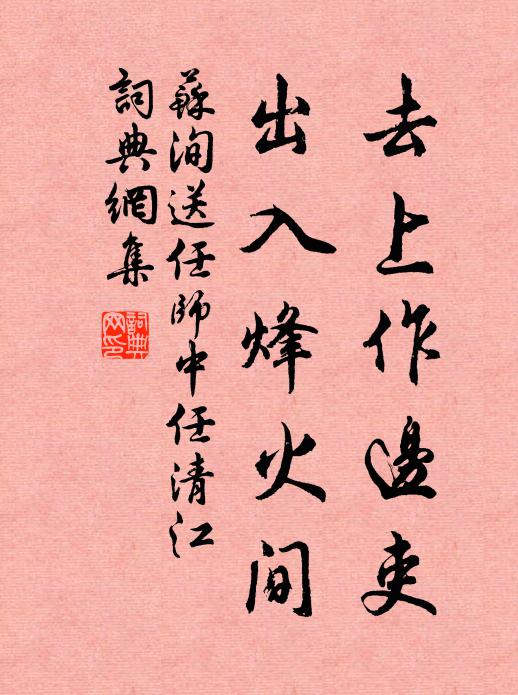 去上作邊吏
出入烽火間
蘇洵送任師中任清江
詞典網集
詞典網印